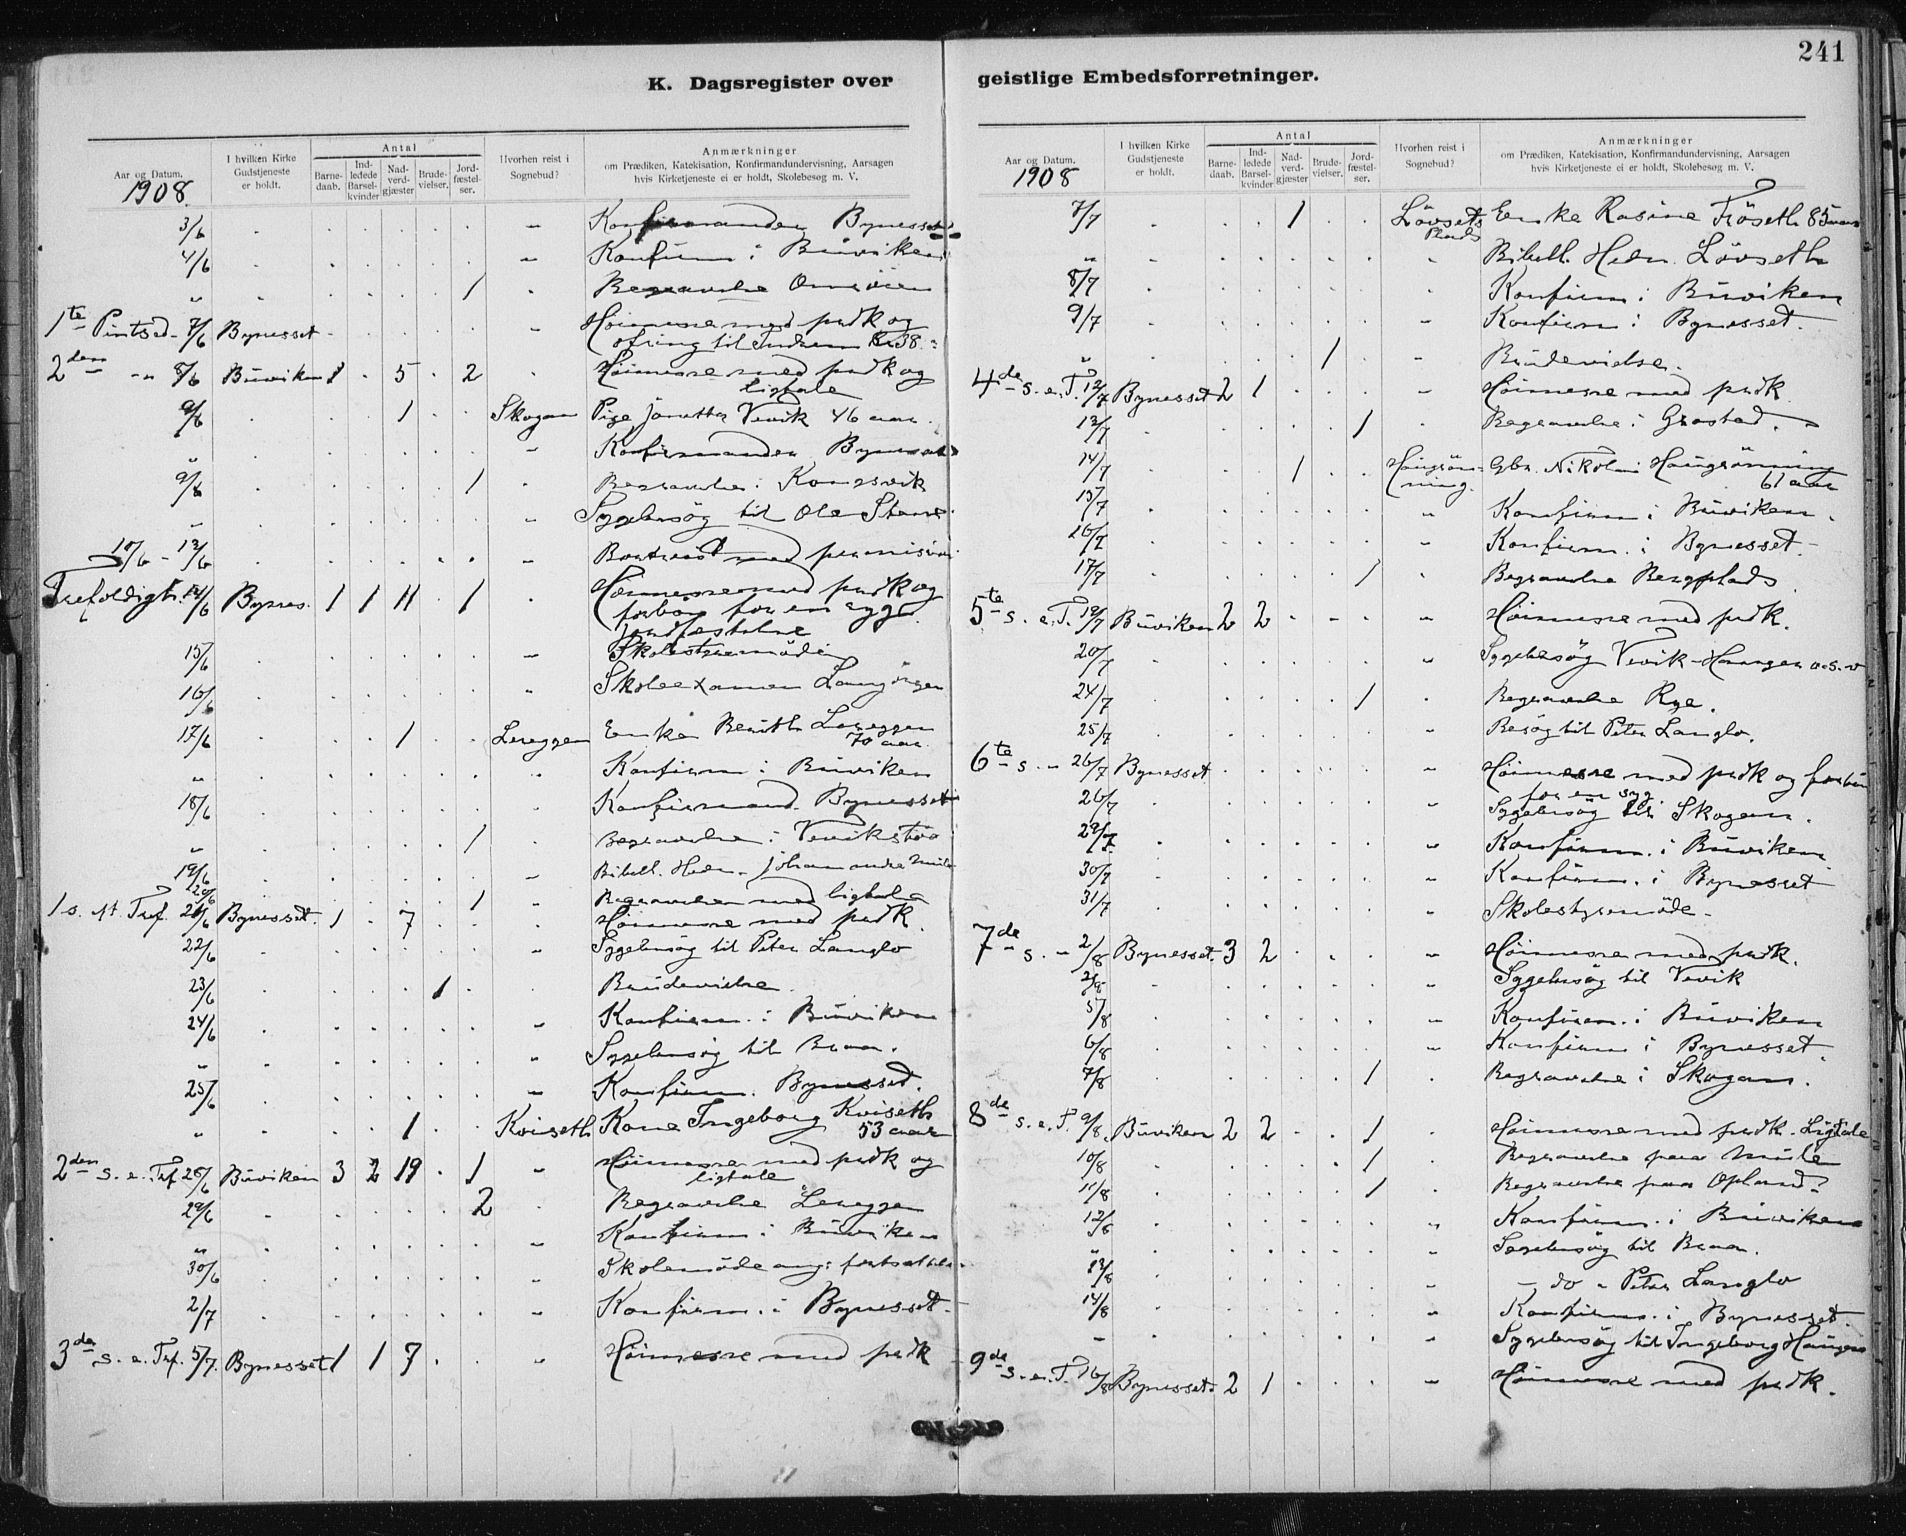 241
K. Dagsregister over
geistlige Embedsforretninger.
Aar og Datum.
1908.
I hvilken Kirke Gudstjeneste er holdt.
Antal
Barne-daab.
Ind-ledede Barsel-kvinder
Nad-verd-gjæster
Brude-vielser.
Jord-fæstel-ser.
Hvorhen reist i Sognebud?
Anmærkninger
om Prædiken, Katekisation, Konfirmandundervisning, Aarsagen
hvis Kirketjeneste ei er holdt, Skolebesøg m. V.
3/6 Konfirmander Bynesset
4/6 " Konfirm i Buviken
" 1 Begravelse
1te Pintsed. 7/6 Bynesset " Høimesse med prdk og
ofring til Kr 38
2den " 8/6 Buviken 1 5 2 Høimesse med prdk og
ligtale
9/6 1 Skogan Pige Jonetta Vevik 46 aar.
" " Konfirmander Bynesset
9/6 1 Begravelse i
" " Sygebesøg til Ole
" Bortreist med permission
Trefoldigh. 14/6 Bynes. 1 1 11 1 Høimesse med prdk og
forbøn for en syg
Jordfæstelse
15/6 " Skolestyremøde
16/6 " Skoleexamen Langørgen
17/6 1 Lereggen Enke Bereth Lereggen
70 aar
" " Konfirm i Buviken
18/6 Konfirmand. Bynesset
" 1 Begravelse i
19/6 " Bibell. Hedn.
20/6 1 Begravelse med ligtale
1 s. Tref. 21/6 Bynesset. 1 7 Høimesse med prdk.
22/6 " Sygebesøg til Peter Langlo
23/6 1 Brudevielse
24/6 " Konfirm. i Buviken
" " Sygebesøg til
25/6 " Konfirm. Bynesset.
" 1 Kviseth Kone Ingeborg Kviseth
53 aar
2den s. e. Tref. 28/6 Buviken 3 2 19 1 " Høimesse med prdk og
ligtale
29/6 2 Begravelse Lereggen
" Konfirm i Buviken
30/6 " Skolemøde
2/7 " Konfirm. i Bynesset.
3de s. e. Tref. 5/7. Bynesset 1 1 7 " Høimesse med prdk
Aar og Datum.
1908
I hvilken Kirke Gudstjeneste er holdt.
Antal
Barne-daab.
Ind-ledede Barsel-kvinder
Nad-verd-gjæster
Brude-vielser.
Jord-fæstel-ser.
Hvorhen reist i Sognebud?
Anmærkninger
om Prædiken, Katekisation, Konfirmandundervisning, Aarsagen
hvis Kirketjeneste ei er holdt, Skolebesøg m. V.
7/7 1 Løvsets Plads Enke Rasine Frøseth 85 aar
" Bibell. Hedn. Løvseth
8/7 Konfirm i Buviken
9/7 " Konfirm i Bynesset.
" 1 " Brudevielse.
4de s. e. T. 12/7 Bynesset 2 1 " Høimesse med prdk.
13/7 1 Begravelse i Grostad.
14/7 1 Haugrøn-ning. Gbr. Nikolai Haugrønning
61 aar
15/7 " Konfirm i Buviken.
16/7 " Konfirm. i Bynesset.
17/7 1 Begravelse Bergplads
5te s. e. T. 19/7 Buviken 2 2 " Høimesse med prdk.
20/7 " Sygebesøg Vevik - Haugen o.s.v
24/7 1 Begravelse Rye.
25/7 Besøg til Peter Langlo.
6te s. " 26/7 Bynesset " Høimesse med prdk og forbøn
for en syg
26/7 " Sygebesøg til Skogan.
29/7 " Konfirm. i Buviken
30/7 " Konfirm. i Bynesset
31/7 " Skolestyremøde
7de s. " 2/8 Bynesset. 3 2 " Høimesse med prdk.
2/8 " Sygebesøg til Vevik
5/8 " Konfirm. i Buviken
6/8 " Konfirm i Bynesset.
7/8 1 Begravelse i Skogan.
8de s. e. T. 9/8. Buviken 2 2 1 Høimesse med prdk. Ligtale
10/8 1 Begravelse paa Mule
11/8 1 Begravelse paa Opland.
12/8 " Konfirm. i Buviken
" Sygebesøg til
13/8 " - do " Peter Langlo
14/8 " Konfirm. i Bynesset.
" Sygebesøg til Ingeborg Haugen
9de s. e. T. 16/8 Bynesset. 2 1 " Høimesse med prdk.